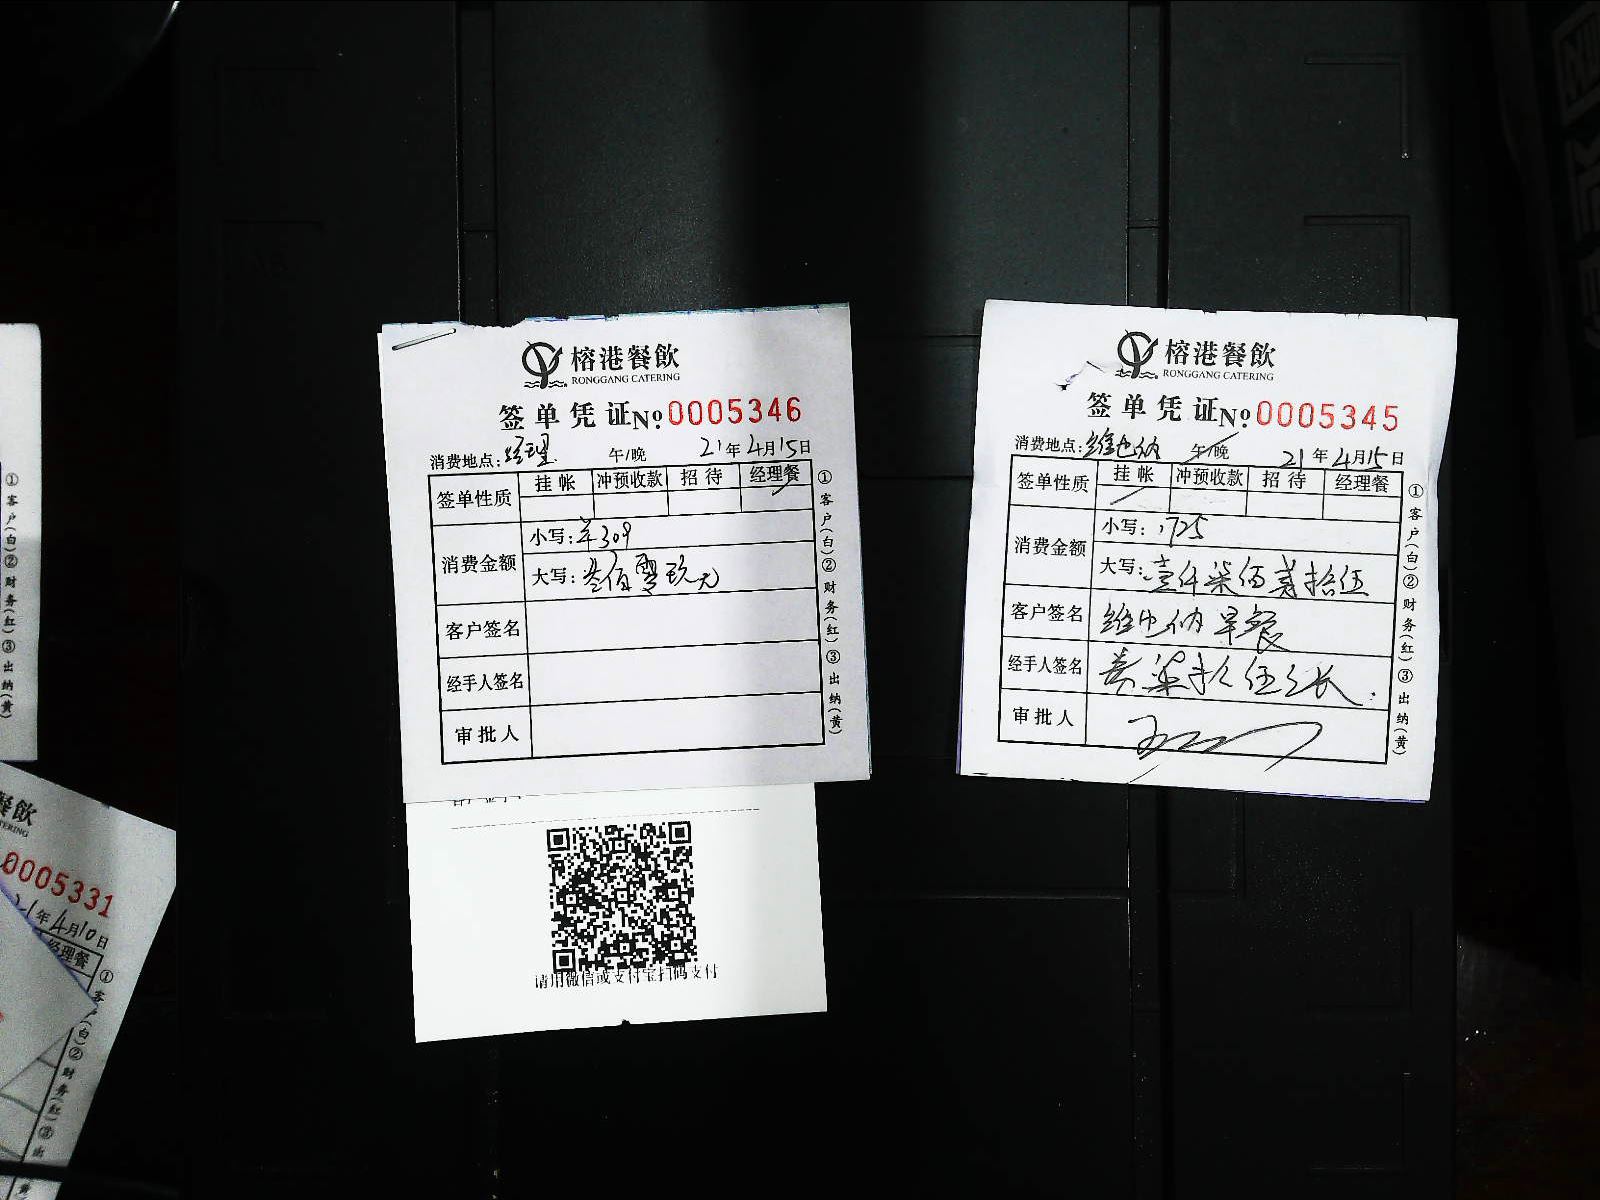 榕港餐飲
RONGGANG CATERING
签单凭证 No. 0005346
消费地点: 经理 午/晚 21年4月15日
签单性质 挂帐 冲预收款 招待 经理餐
消费金额
小写: ¥309
大写: 叁佰零玖元
客户签名
经手人签名
审批人
①客户(白)②财务(红)③出纳(黄)
请用微信或支付宝扫码支付
榕港餐飲
RONGGANG CATERING
签单凭证 No. 0005345
消费地点: 维也纳 午/晚 21年4月15日
签单性质 挂帐 冲预收款 招待 经理餐
消费金额
小写: 1725
大写: 壹仟柒佰贰拾伍
客户签名 维也纳早餐
经手人签名
审批人
①客户(白)②财务(红)③出纳(黄)
①客户(白)②财务(红)③出纳(黄)
餐飲
0005331
21年4月10日
经理餐
①客户(白)②财务(红)③出纳(黄)